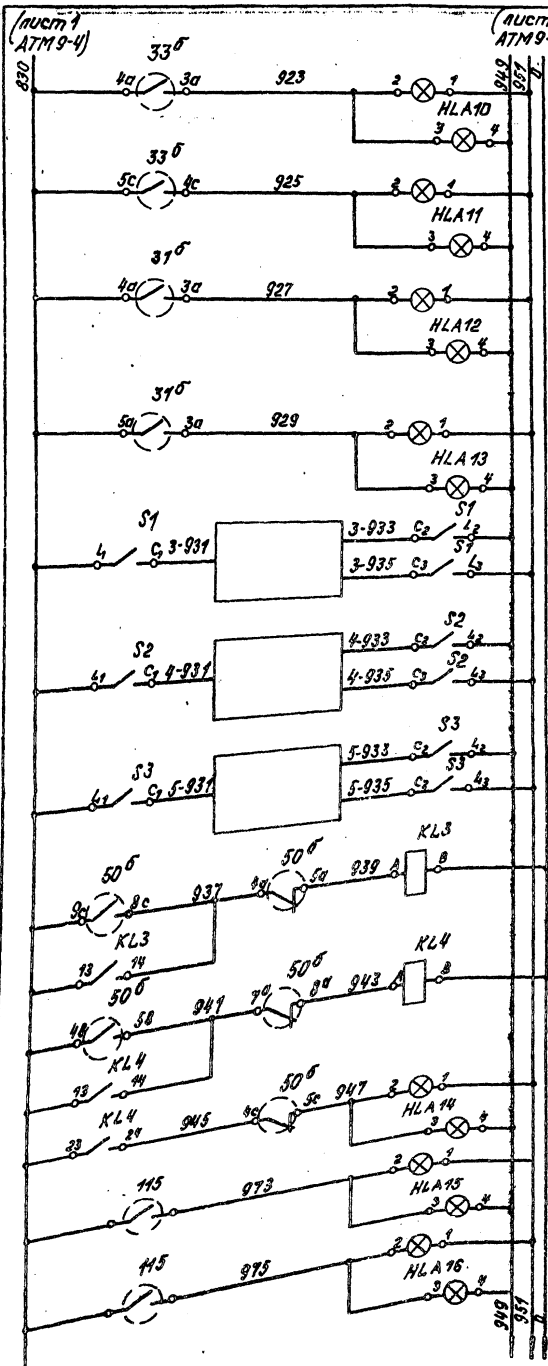 (лист 1
АТМ 9-4)
(лист
АТМ 9-
830
949
951
0.
33б
4а 3а 923 2 1
HLA10
3 4
33б
5с 4с 925 2 1
HLA11
3 4
31б
4а 3а 927 2 1
HLA12
3 4
31б
5а 3а 929 2 1
HLA13
3 4
S1
L1 C1 3-931
3-933 C2 S1 L2
3-935 C3 S1 L3
S2
L1 C1 4-931
4-933 C2 S2 L2
4-935 C3 S2 L3
S3
L1 C1 5-931
5-933 C2 S3 L2
5-935 C3 S3 L3
50б
9а 8с 937
50б
5а 939 А В
KL3
KL3
13 14
50б
4в 5в 941
50б
7а 8а 943 А В
KL4
KL4
13 14
KL4
23 24 945
50б
4с 5с 947 2 1
HLA14
3 4
115
973 2 1
HLA15
3 4
115
975 2 1
HLA16
3 4
949
951
0.